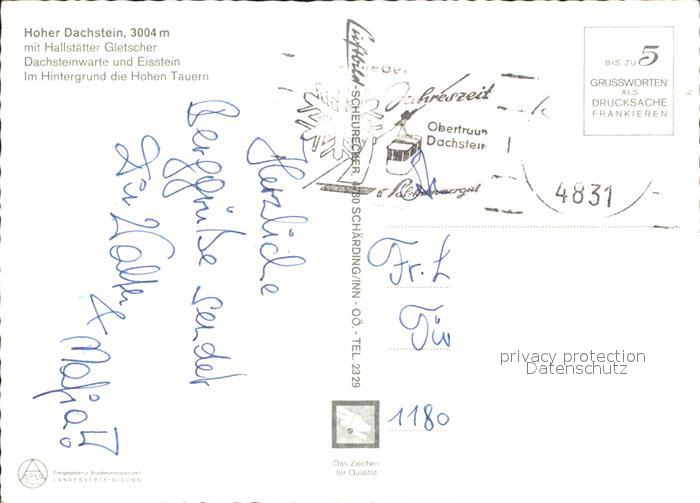 Hoher Dachstein, 3004 m
mit Hallstätter Gletscher
Dachsteinwarte und Eisstein
Im Hintergrund die Hohen Tauern
Herzliche
Berggrüße sendet
Luftbild-SCHEURECKER, 4780 SCHÄRDING/INN - OÖ. - TEL. 23 29
Jahreszeit
Obertraun
Dachstein
BIS ZU 5
GRUSSWORTEN
ALS
DRUCKSACHE
FRANKIEREN
4831
Fr. L
1180
privacy protection
Datenschutz
Das Zeichen
für Qualität
Freigegeben v. Bundesministerium f.
LANDESVERTEIDIGUNG